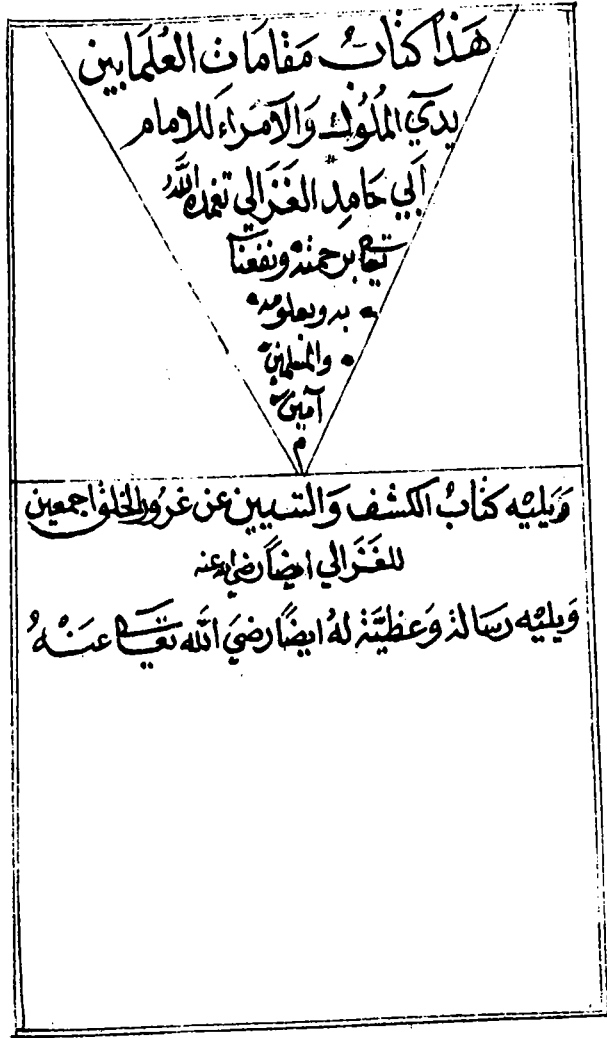 هَذا كتابُ مَقامَات العُلمَا بين
يدَي المُلُوك وَالأمَرَاءَ للامام
أبي حَامِد الغَزَالي تغمده اللَّه
تعالى برحمته ونفعنا
به وبعلومه
والمسلمين
آمين
م
وَيليْه كتابُ الكشف وَالتبيين عن غرُور الخلق اجمعين
للغَزَالي ايضاً رضي الله عنه
وَيليْه رسَالة وَعظيَّة لهُ ايضاً رضيَ اللَّه تعالى عنْهُ